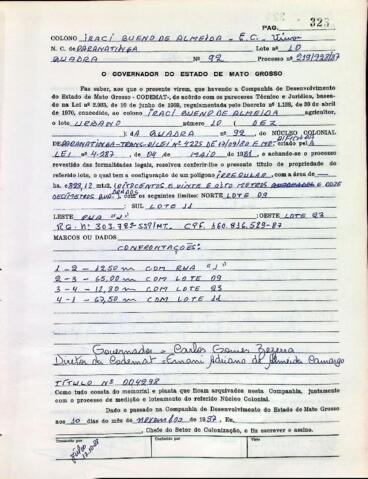 PAG. 323
COLONO IRACI BUENO DE ALMEIDA - E.C. - Viúva
N. C. de PARANATINGA Lote nº 10
QUADRA Nº 92 Processo nº 219/928/87
O GOVERNADOR DO ESTADO DE MATO GROSSO
Faz saber, aos que o presente virem, que havendo a Companhia de Desenvolvimento
do Estado de Mato Grosso -CODEMAT-, de acordo com os pareceres Técnico e Jurídico, basea-
do na Lei nº 2.983, de 10 de junho de 1969, regulamentada pelo Decreto nº 1.138, de 30 de abril
de 1970, concedido, ao colono IRACI BUENO DE ALMEIDA agricultor,
o lote URBANO número 10 ( DEZ
) DA QUADRA nº 92, do NÚCLEO COLONIAL
DE PARANATINGA criado pela
LEI nº 4.287 de MAIO 1981, e achando-se o processo
revestido das formalidades legais, resolvem conferir-lhe o presente título de propriedade do
referido lote, o qual tem a configuração de um polígono IRREGULAR, com a área de
828,12 mt2. (OITOCENTOS E VINTE E OITO METROS QUADRADOS E DOZE
DECÍMETROS QUADRADOS), com os seguintes limites: NORTE LOTE 09
; SUL LOTE 11
LESTE RUA "J" ; OESTE LOTE 23
R.G. nº 303.782-SSP/MT. CPF. 160.816.529-87
MARCOS OU DADOS
CONFRONTAÇÕES:
1 - 2 - 12,50 m COM RUA "J"
2 - 3 - 65,00 m COM LOTE 09
3 - 4 - 12,80 m COM LOTE 23
4 - 1 - 67,50 m COM LOTE 11
Governador - Carlos Gomes Bezerra
Diretor da Codemat - Ernani Adriano de Almeida Camargo
TÍTULO Nº 004298
Como tudo consta do memorial e planta que ficam arquivados nesta Companhia, juntamente
com o processo de medição e loteamento do referido Núcleo Colonial.
Dado e passado na Companhia de Desenvolvimento do Estado de Mato Grosso
aos 10 dias do mês de novembro de 1987, Eu,
, Chefe do Setor de Colonização, o fiz escrever e assino.
Conferido por
Visto